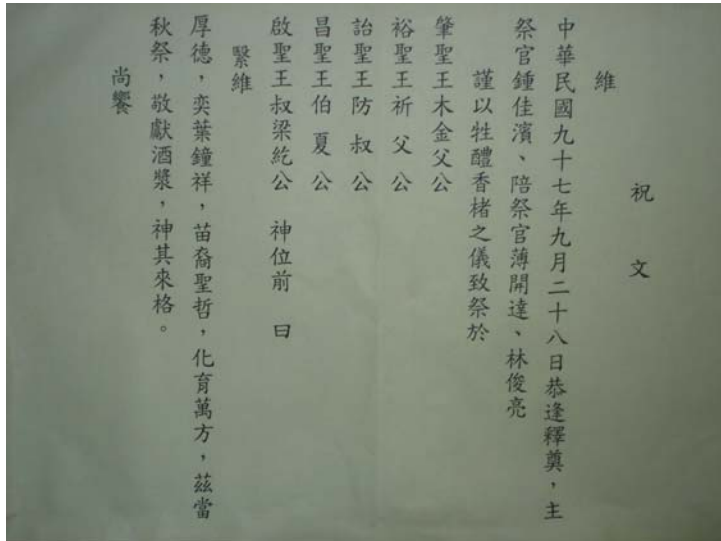 祝文
維
中華民國九十七年九月二十八日恭逢釋奠，主
祭官鍾佳濱、陪祭官薄開達、林俊亮
謹以牲醴香楮之儀致祭於
肇聖王木金父公
裕聖王祈父公
詒聖王防叔公
昌聖王伯夏公
啟聖王叔梁紇公 神位前 曰
緊維
厚德，奕葉鐘祥，苗裔聖哲，化育萬方，茲當
秋祭，敬獻酒漿，神其來格。
尚饗